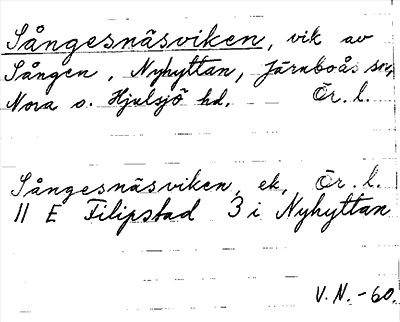 Sångesnäsviken, vik av
Sången, Nyhyttan, Järnboås sn,
Nora o. Hjulsjö hd. Ör. l.
Sångesnäsviken, ek, Ör. l.
11 E Filipstad 3 i Nyhyttan
V. N. -60.